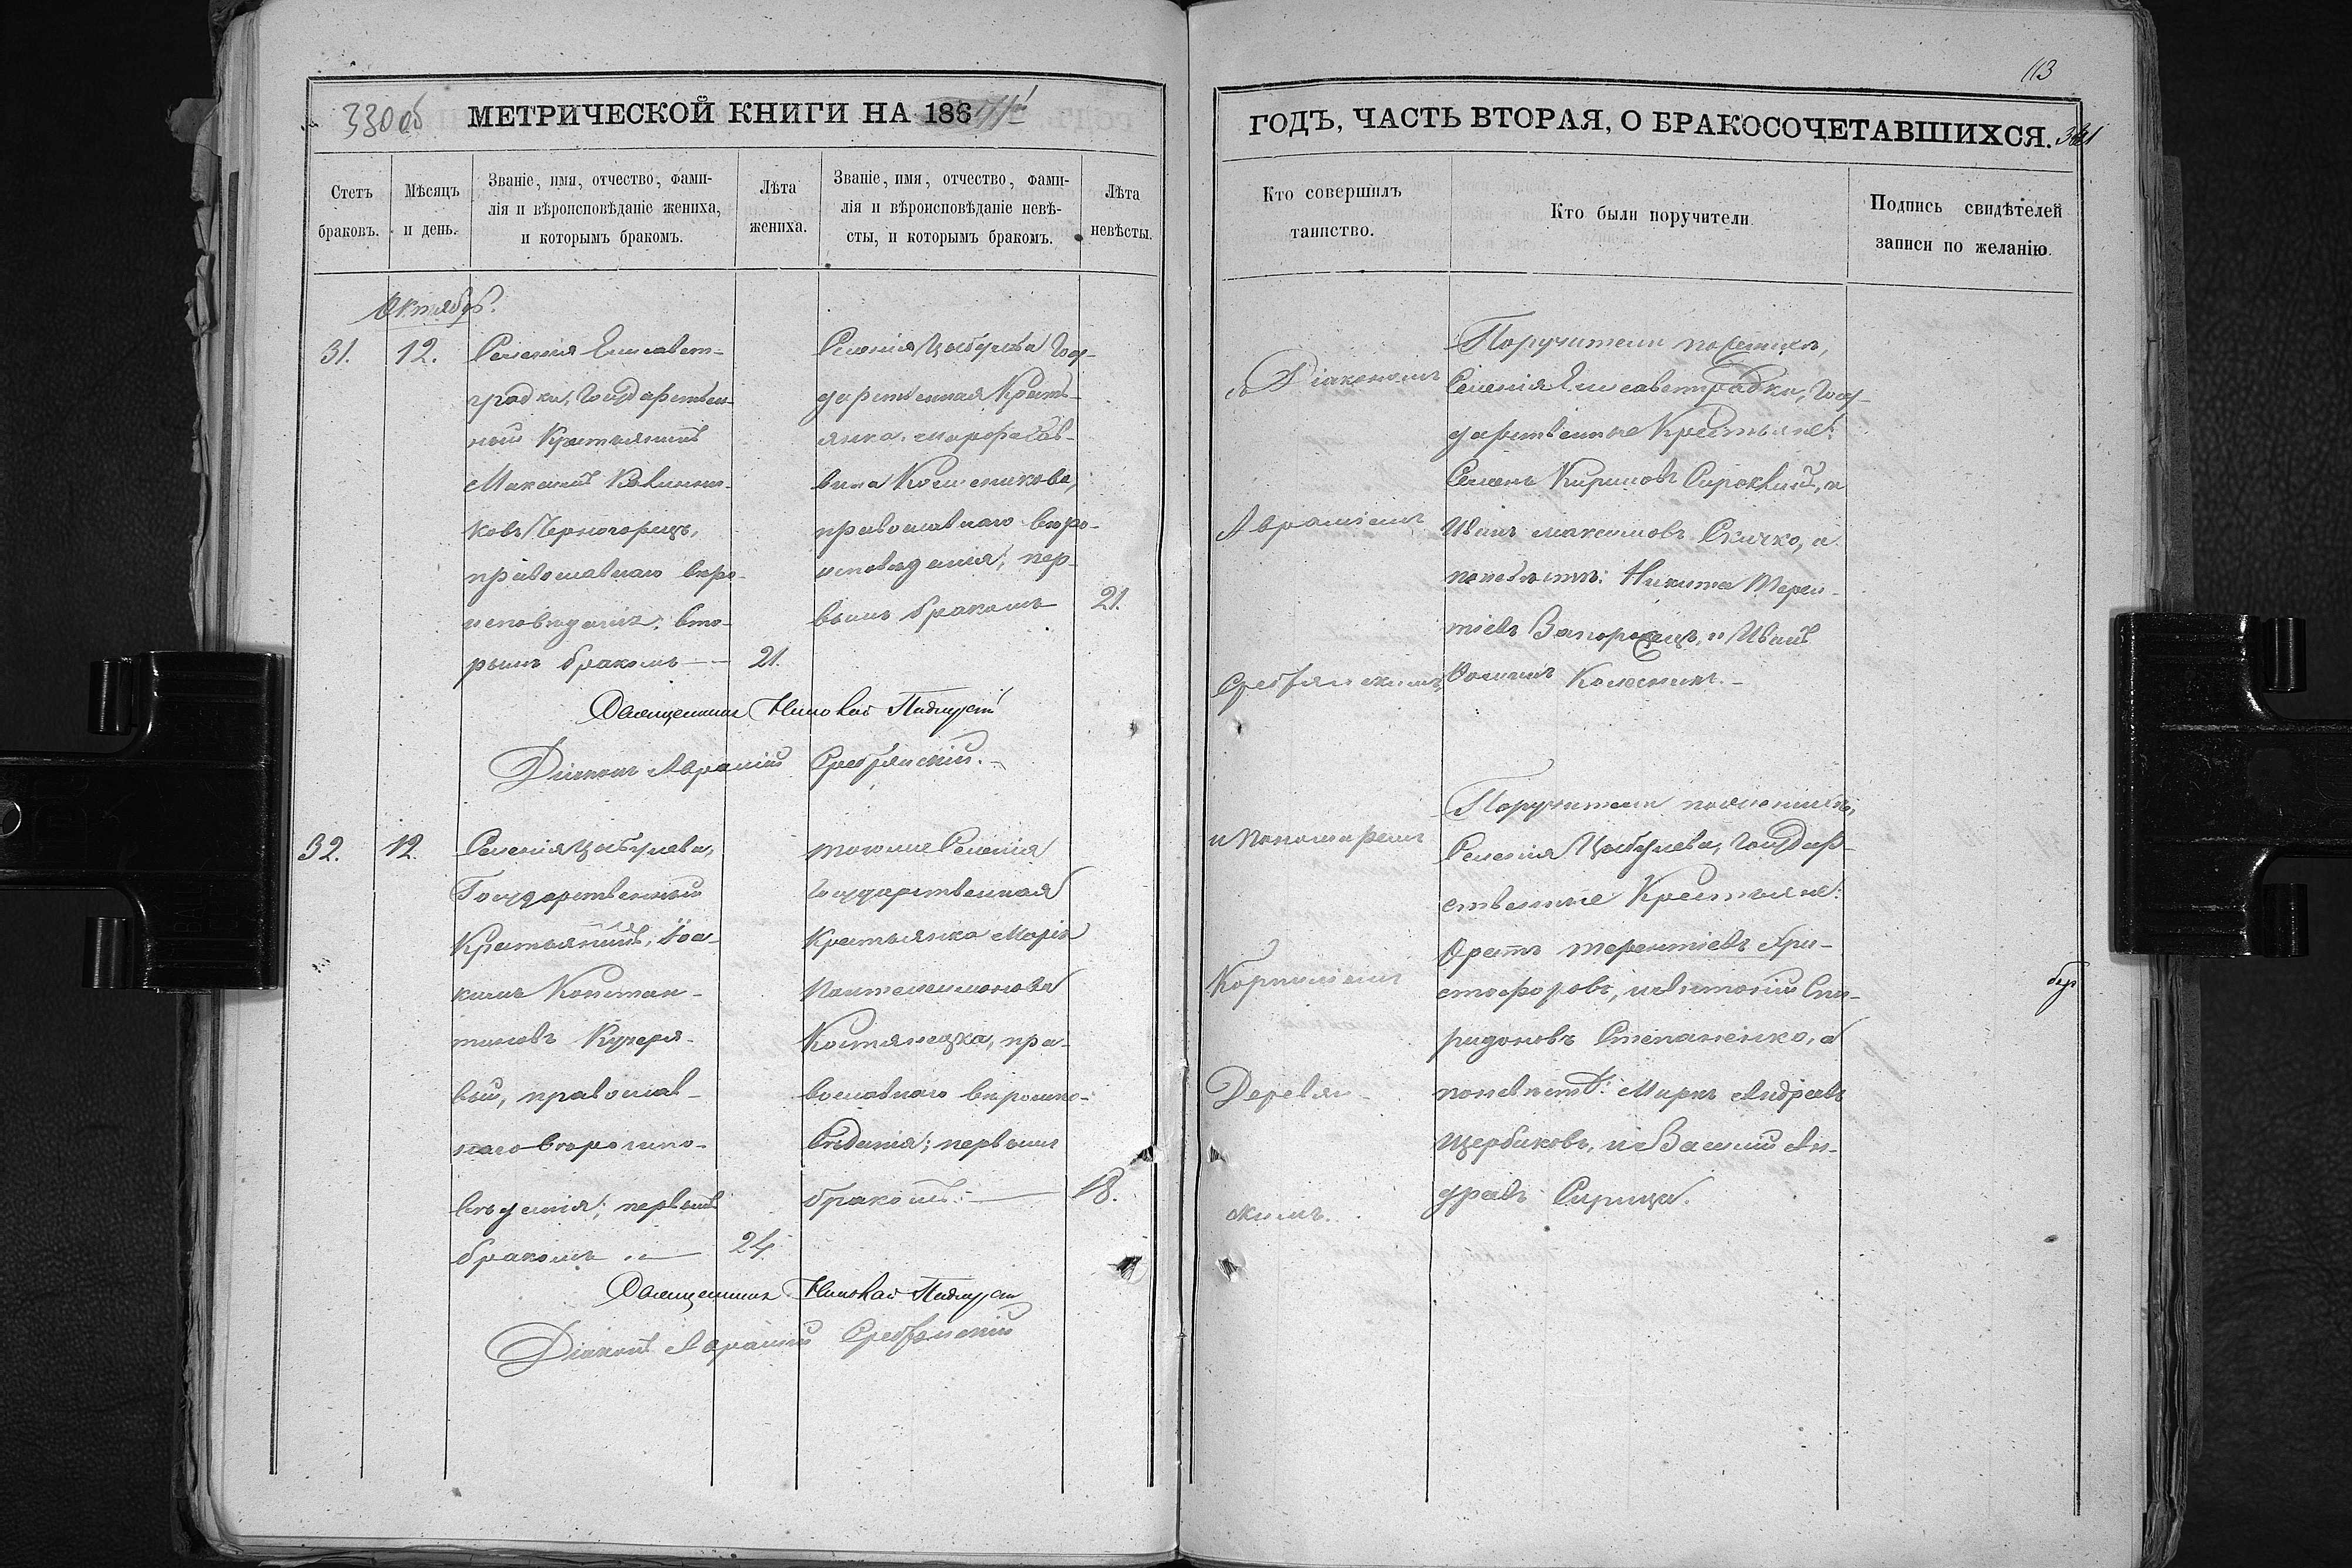 330об МЕТРИЧЕСКОЙ КНИГИ НА 186
Счетъ браковъ.
Мѣсяцъ и день.
Званіе, имя, отчество, фами-
лія и вѣроисповѣданіе жениха,
и которымъ бракомъ.
Лѣта жениха.
Званіе, имя, отчество, фами-
лія и вѣроисповѣданіе невѣ-
сты, и которымъ бракомъ.
Лѣта невѣсты.
Октябрь.
31.
12.
Селенія Елисавет-
градки, Государствен-
ный Крестьянинъ
Максимъ
ковъ Черногорецъ,
православнаго вѣро-
исповѣданія, вто-
рымъ бракомъ
21.
Селенія Цыбулева Госу-
дарственная Кресть-
янка Марфа Сав-
вина Колесникова,
православнаго вѣро-
исповѣданія, пер-
вымъ бракомъ
21.
Священникъ Николай
Діаконъ Авраамій Сребрянскій.
32.
12.
Селенія Цыбулева,
Государственный
Крестьянинъ, Іоа-
кимъ Констан-
тиновъ Кучеря-
вый, православ-
наго вѣроиспо-
вѣданія; первымъ
бракомъ
24
тогоже Селенія
Государственная
Крестьянка Марія
Пантелеимонова
Костянецка, пра-
вославнаго вѣроиспо-
вѣданія; первымъ
бракомъ
18.
Священникъ Николай
Діаконъ Авраамій Сребрянскій
113
ГОДЪ, ЧАСТЬ ВТОРАЯ, О БРАКОСОЧЕТАВШИХСЯ.
Кто совершилъ таинство.
Кто были поручители
Подпись свидѣтелей
записи по желанію.
съ Діакономъ
Авраміемъ
Сребрянскимъ,
и Пономаремъ
Корниліемъ
Деревян-
скимъ.
Поручители по женихѣ,
Селенія Елисаветградки, Госу-
дарственные Крестьяне:
Семенъ Кириловъ Сирокваш, и
Иванъ Максимовъ Скичко, а
по невѣстѣ: Никита Терен-
тіевъ Запорожецъ, и Иванъ
Фоминъ Колесникъ.
Поручители по женихѣ,
Селенія Цыбулева, Государ-
ственные Крестьяне:
Орестъ Терентіевъ Хри-
стофоровъ, и Антоній Спи-
ридоновъ Степаненко, а
по невѣстѣ: Маркъ Андреевъ
Щербаковъ, и Василій Ан-
дреевъ Сирица.